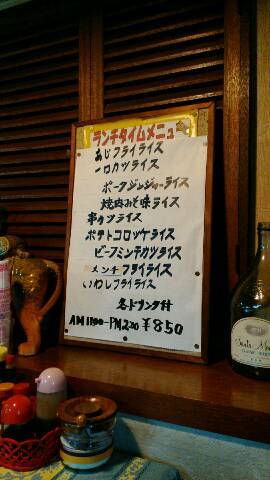 ランチタイムメニュー
あじフライライス
一口カツライス
ポークジンジャーライス
焼肉みそ味ライス
串カツライス
ポテトコロッケライス
ビーフミンチカツライス
メンチフライライス
いわしフライライス
各ドリンク付
¥850